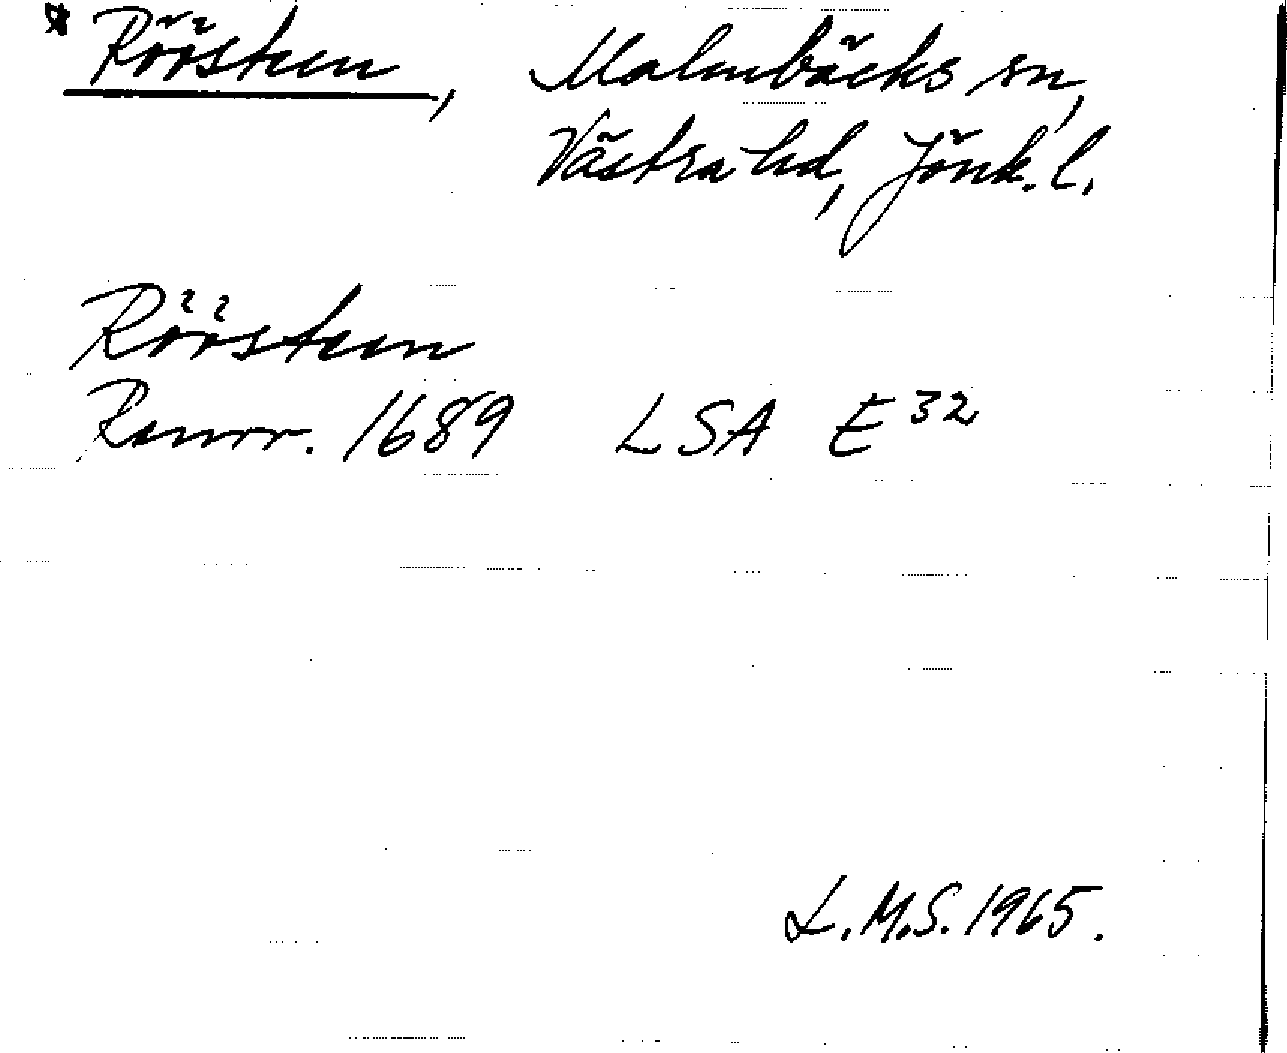 * Röösteen, Malmbäcks sn,
Västra hd, Jönk. l.
Röösteen
Ranrr. 1689 LSA E 32
L.M.S. 1965.